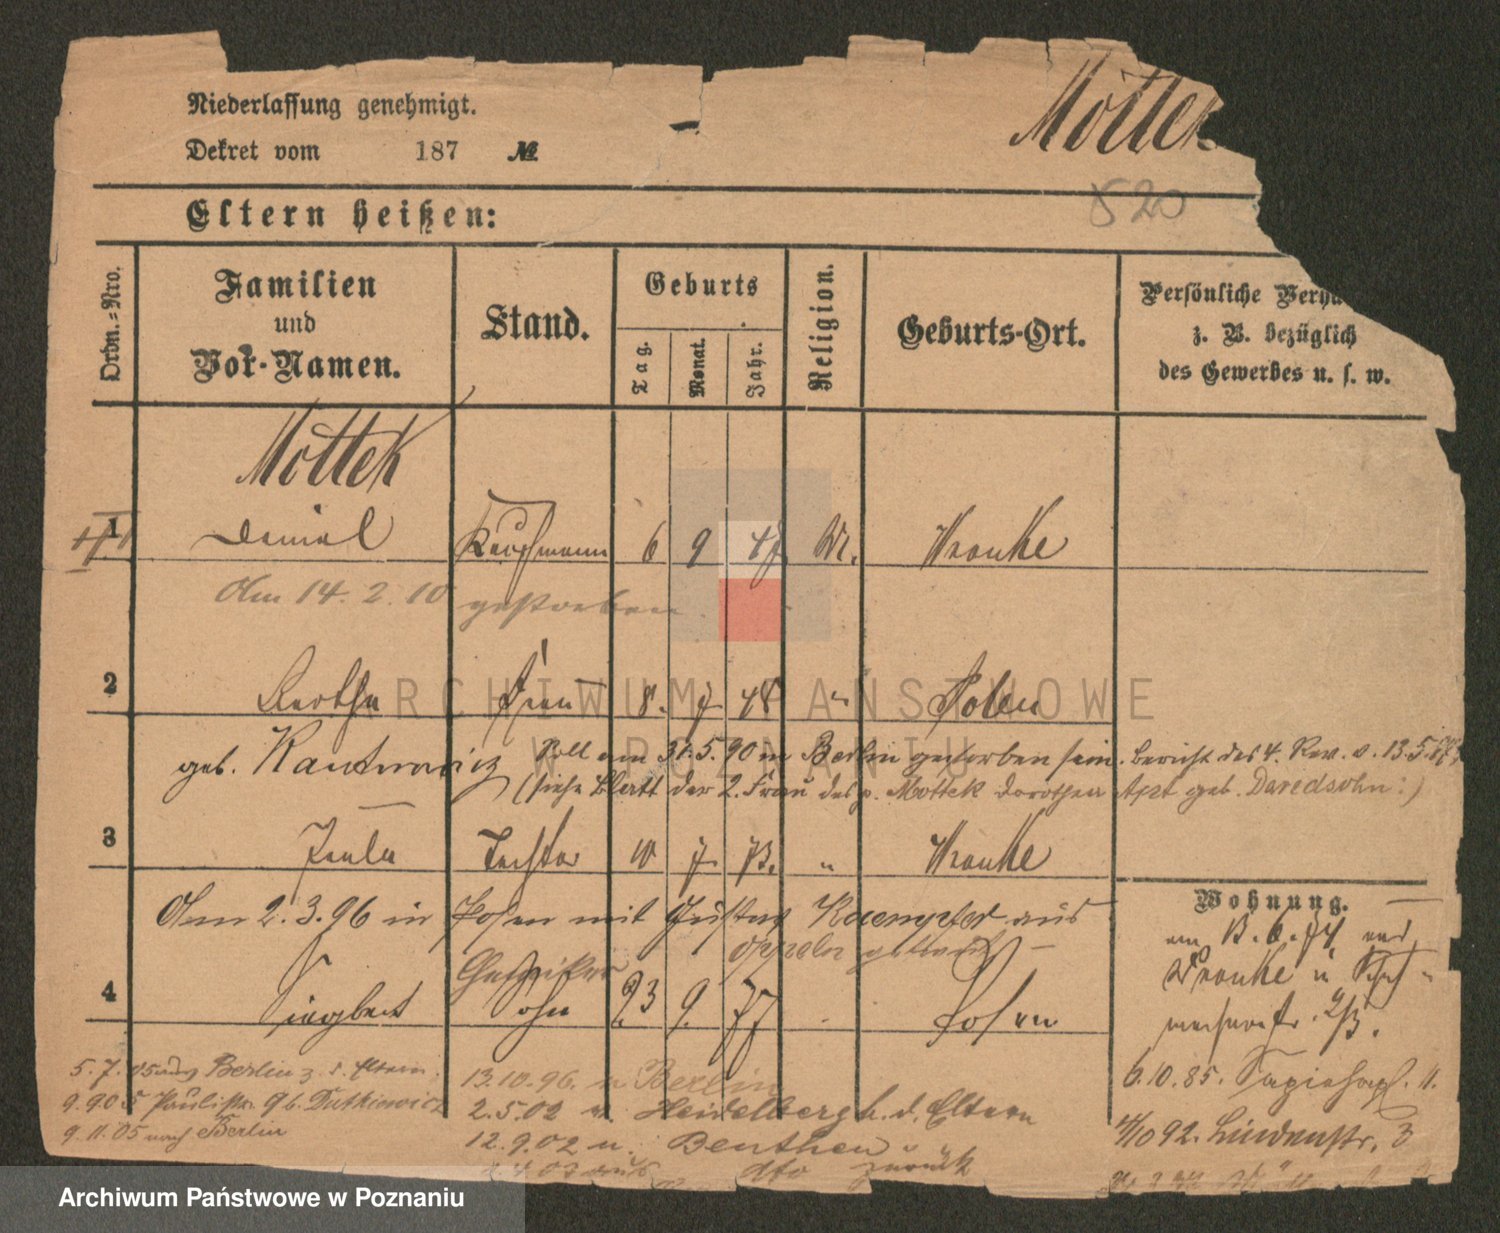 Niederlassung genehmigt.
Mottek
Dekret vom 187 №
820
Eltern heißen:
Ordn.-Nro.
Familien und Vor-Namen.
Stand.
Geburts
Tag.
Monat.
Jahr.
Religion.
Geburts-Ort.
Persönliche
z. B. bezüglich
des Gewerbes u. s. w.
Mottek
1 Daniel Kaufmann 6 9 47 M. Wronke
Am 14. 2. 10 gestorben
2 Bertha Frau 8. 7 48 " Posen
geb. Kantorowicz Soll am 31.5.90 in Berlin gestorben sein. Bericht des 4. Rev. v. 13.5.
(siehe Blatt der 2. Frau des p. Mottek Dorothea Apt geb. Davidsohn:)
3 Paula Tochter 10 7 73. " Wronke
Am 2.3.96 in Posen mit Gustav Kaempfer aus
Oppeln getraut
4 Siegbert Sohn 23 9. 77 Posen
Wohnung.
13.6.74
Wronke
6.10.85. Sapiehapl. 11.
92. Lindenstr. 3
5.7.05 nach Berlin z. d. Eltern.
9.9.05 Paulistr. 9 b. Dutkiewicz
9.11.05 nach Berlin
13.10.96. n Berlin
2.5.02 n. Heidelberg b. d. Eltern
12.9.02 n. Beuthen
dto zurück
ARCHIWUM PAŃSTWOWE
W POZNANIU
Archiwum Państwowe w Poznaniu